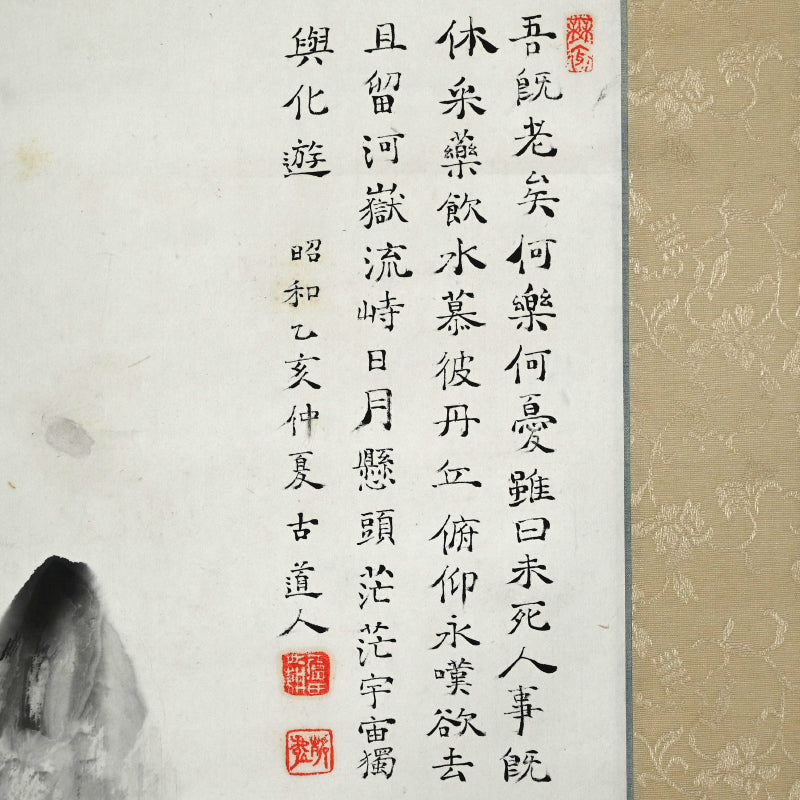 吾既老矣何樂何憂雖曰未死人事既
休采藥飲水慕彼丹丘俯仰永嘆欲去
且留河嶽流峙日月懸頭茫茫宇宙獨
與化遊
昭和乙亥仲夏古道人